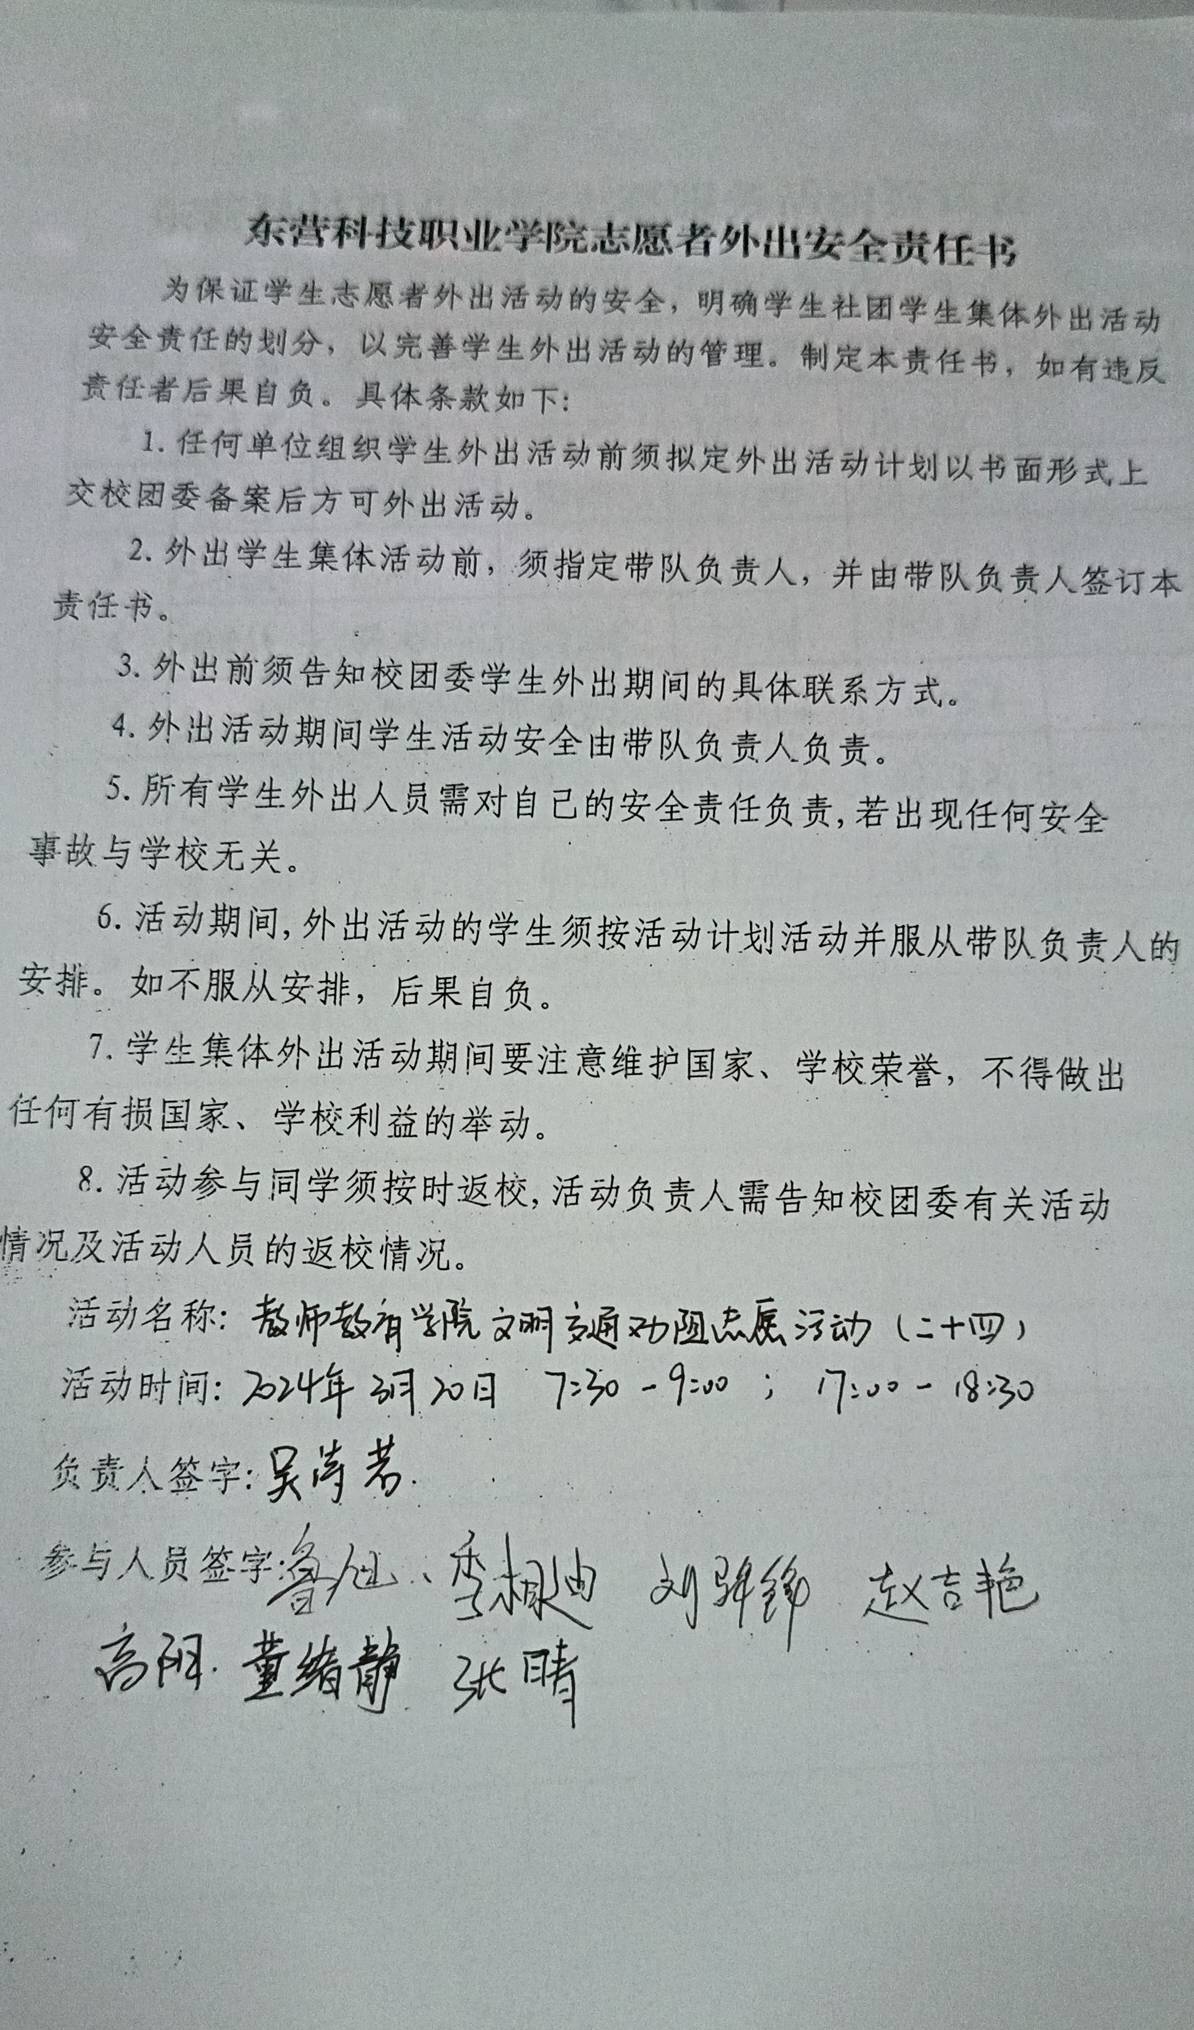 东营科技职业学院志愿者外出安全责任书
为保证学生志愿者外出活动的安全，明确学生社团学生集体外出活动
安全责任的划分，以完善学生外出活动的管理。制定本责任书，如有违反
责任者后果自负。具体条款如下：
1. 任何单位组织学生外出活动前须拟定外出活动计划以书面形式上
交校团委备案后方可外出活动。
2. 外出学生集体活动前，须指定带队负责人，并由带队负责人签订本
责任书。
3. 外出前须告知校团委学生外出期间的具体联系方式。
4. 外出活动期间学生活动安全由带队负责人负责。
5. 所有学生外出人员需对自己的安全责任负责，若出现任何安全
事故与学校无关。
6. 活动期间，外出活动的学生须按活动计划活动并服从带队负责人的
安排。如不服从安排，后果自负。
7. 学生集体外出活动期间要注意维护国家、学校荣誉，不得做出
任何有损国家、学校利益的举动。
8. 活动参与同学须按时返校，活动负责人需告知校团委有关活动
情况及活动人员的返校情况。
活动名称：教师教育学院文明交通劝阻志愿活动（二十四）
活动时间：2024年3月20日 7:30-9:00；17:00-18:30
负责人签字：吴涛君
参与人员签字：鲁旭、季枫迪 刘骅锋 赵吉艳
高阳. 董绪静 张晴